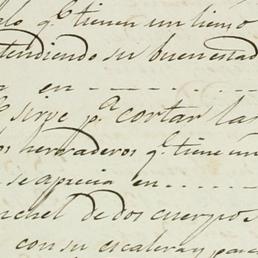 qe. tienen un lienzo
tendiendo su buen estad
en - - - -
sirve pa. cortar las
herraderos qe. tiene un
se aprecia en - - - -
de dos cuerpos
con su escalera y para